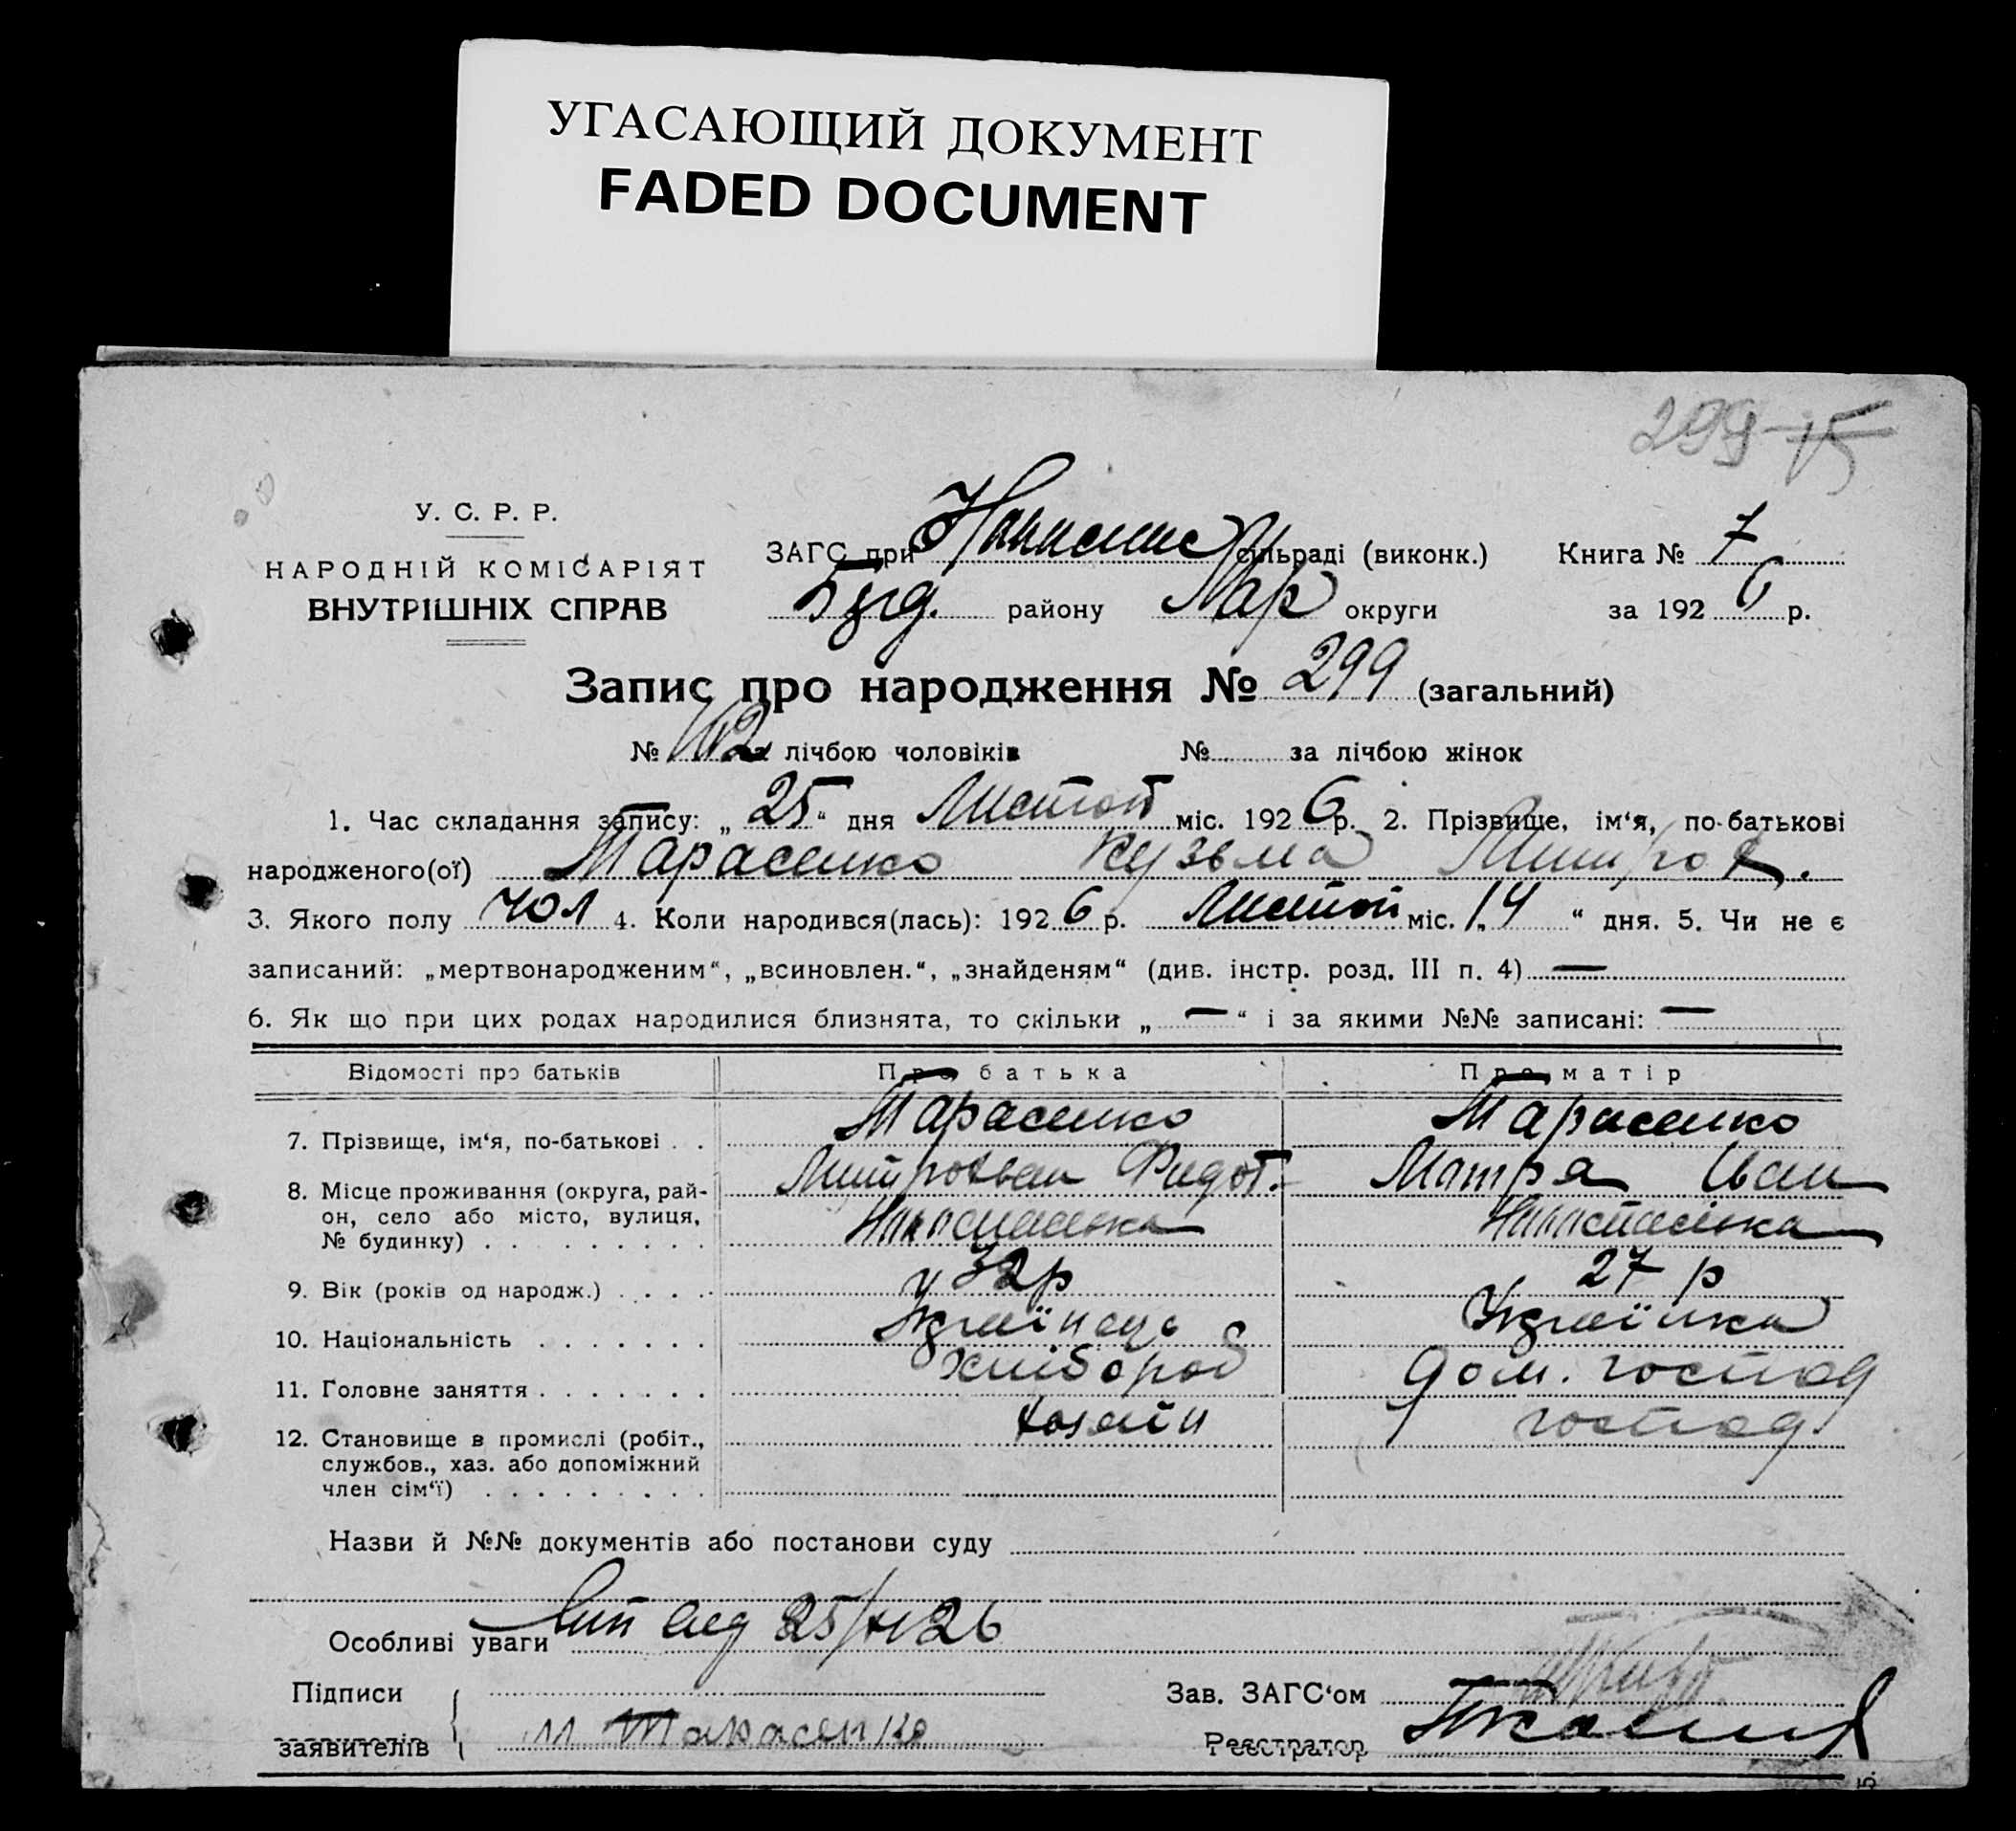 УГАСАЮЩИЙ ДОКУМЕНТ
FADED DOCUMENT
299 15
У. С. Р. Р.
НАРОДНІЙ КОМІСАРІЯТ
ВНУТРІШНІХ СПРАВ
ЗАГС при сільраді (виконк.) Книга № 7
Буд. району Хар округи за 1926 р.
Запис про народження № 299 (загальний)
№ 162 лічбою чоловіків № за лічбою жінок
1. Час складання запису: „25“ дня Листоп міс. 1926 р. 2. Прізвище, ім‘я, по-батькові
народженого(ої) Тарасенко Кузьма Митроф.
3. Якого полу чол 4. Коли народився(лась): 1926 р. Листоп міс. „14“ дня. 5. Чи не є
записаний: „мертвонародженим“, „всиновлен.“, „знайденям“ (див. інстр. розд. III п. 4) —
6. Як що при цих родах народилися близнята, то скільки „—“ і за якими №№ записані: —
Відомості про батьків Про батька Про матір
7. Прізвище, ім‘я, по-батькові . . Тарасенко Тарасенко
Митрофан Федот. Мотря Іван
8. Місце проживання (округа, рай-
он, село або місто, вулиця,
№ будинку)
9. Вік (років од народж.) 32 р 27 р
10. Національність Українець Українка
11. Головне заняття хлібороб дом. господ
12. Становище в промислі (робіт.,
службов., хаз. або допоміжний
член сім‘ї) хозяїн господ.
Назви й №№ документів або постанови суду
Особливі уваги 25/XI 26
Підписи
заявителів М Тарасенко
Зав. ЗАГС‘ом
Реєстратор